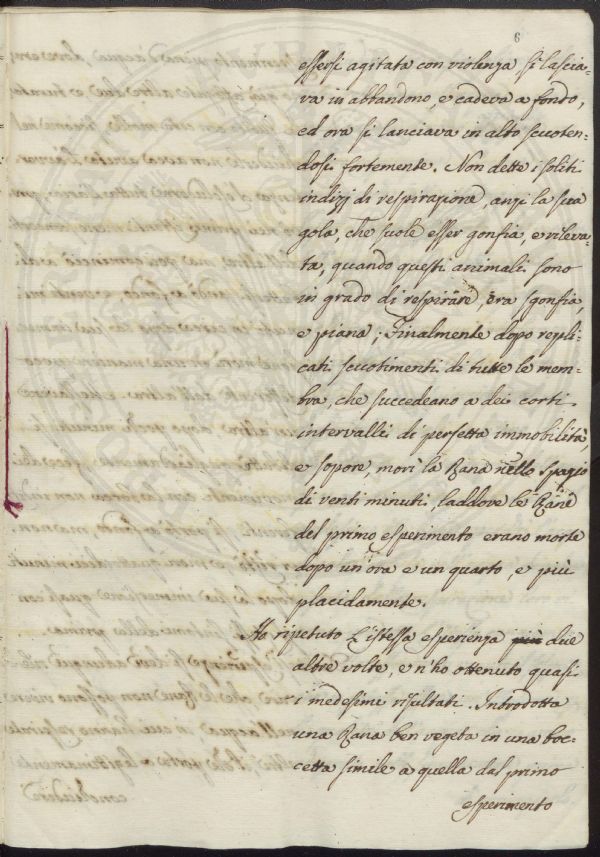 6
essersi agitata con violenza si lascia-
va in abbandono, e cadeva a fondo,
ed ora si lanciava in alto scuoten-
dosi fortemente. Non dette i soliti
indizj di respirazione, anzi la sua
gola, che suole esser gonfia, e rileva-
ta, quando questi animali sono
in grado di respirare, era sgonfia,
e piana; Finalmente dopo repli-
cati scuotimenti di tutte le mem-
bra, che succedeano a dei corti
intervalli di perfetta immobilità,
e sopore, morì la Rana nello spazio
di venti minuti, laddove le Rane
del primo esperimento erano morte
dopo un'ora e un quarto, e più
placidamente.
Ho ripetuto l'istessa esperienza più due
altre volte, e n'ho ottenuto quasi
i medesimi risultati. Introdotta
una Rana ben vegeta in una boc-
cetta simile a quella del primo
esperimento